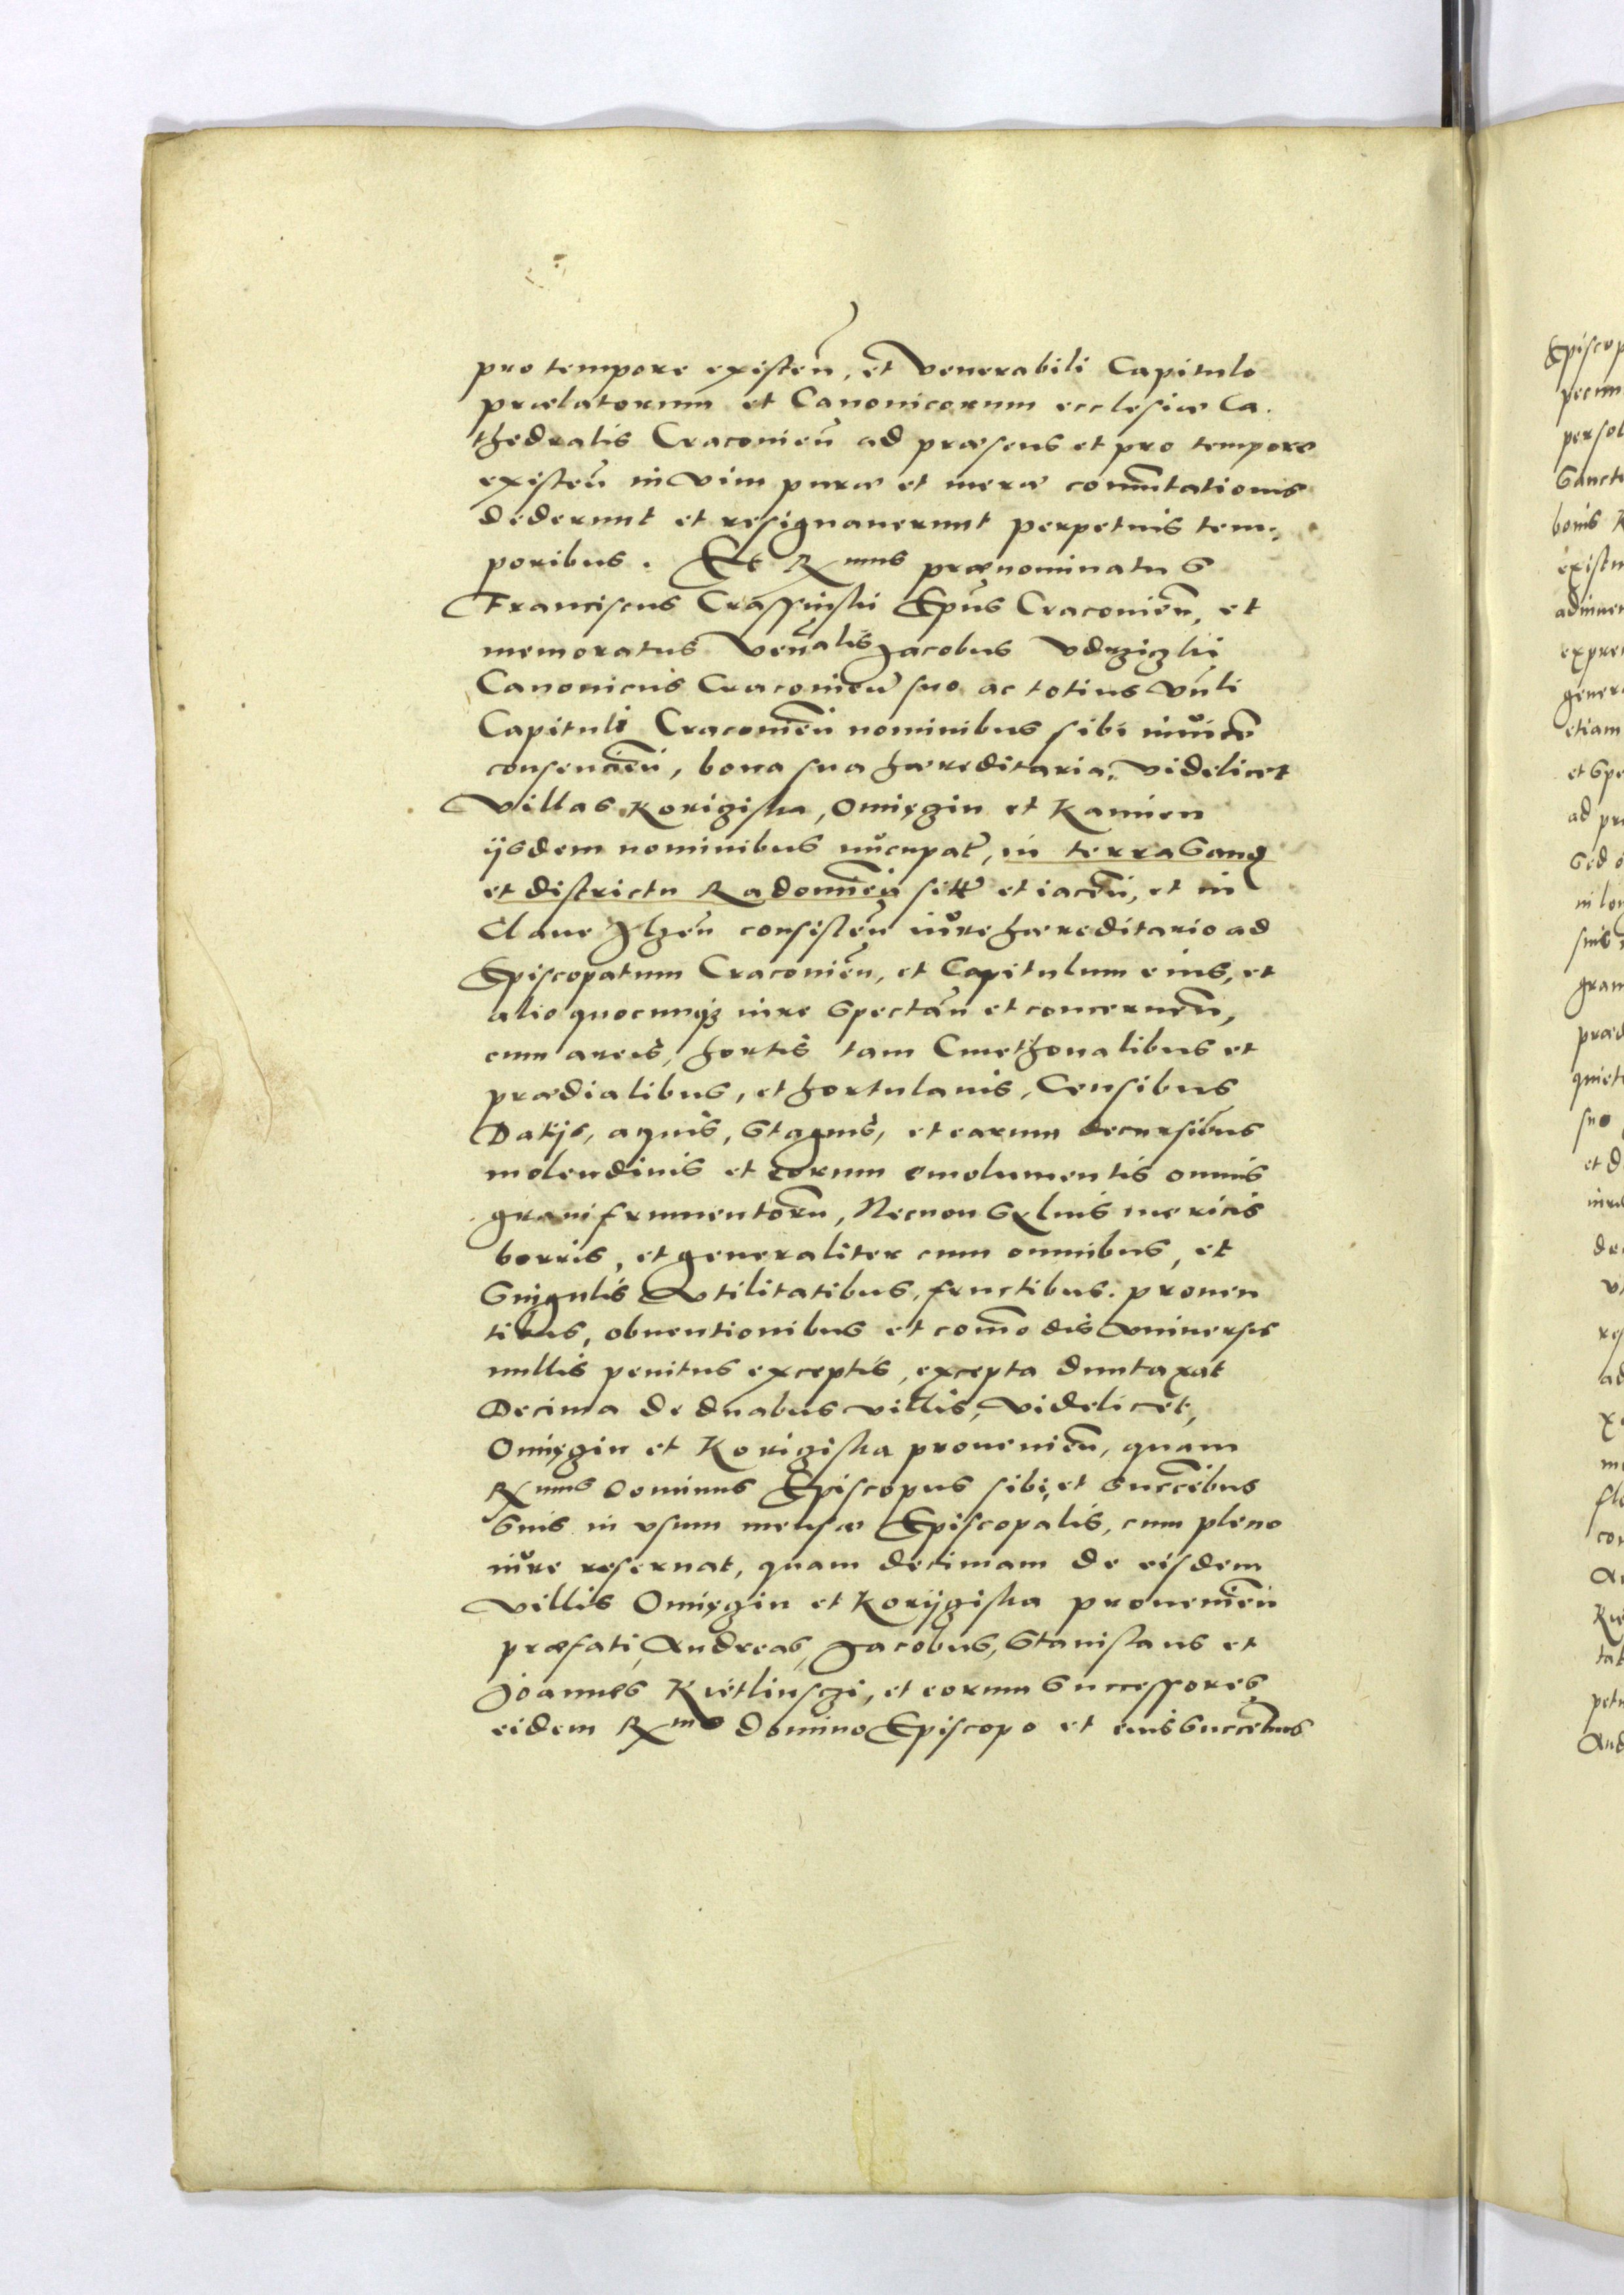 pro tempore existeñ, et Venerabili Capitulo
prælatorum et Canonicorum ecclesiæ Ca.
thedralis Cracovieñ ad præsens et pro tempore
existeñ in vim puræ et meræ com̃utationis
dederunt et resignaverunt perpetuis tem:
poribus. Et Rmus prænominatus
Franciscus Crassinski Epus Cracovieñ, et
memoratus Venalis Jacobus Vdrziczki
Canonicus Cracovieñ suo ac totius Vnli
Capituli Cracovieñ nominibus sibi invicē
consencieñ, bona sua hæreditaria, videlicet
Villas Korigistha, Omięgin et Kamien
ijsdem nominibus nuncupat, in terra Sand
et districtu Radomieñ sitt et iaceñ, et in
Clave Ilzeñ consisteñ iure hæreditario ad
Episcopatum Cracovieñ, et Capitulum eius, et
alio quocunqz iure spectañ et concerneñ,
cum areis, hortis tam Cmethonalibus et
prædialibus, et hortulanis, Censibus
Datijs, aquis, stagnis, et earum decursibus
molendinis et eorum emolumentis omnis
grani frumentorũ, Necnon sylvis mericis
borris, et generaliter cum omnibus, et
singulis vtilitatibus, fructibus. proven
tibus, obventionibus et com̃odis vniversis
nullis penitus exceptis, excepta duntaxat
Decima de duabus villis, videlicet,
Omięgin et Korigistha provenieñ, quam
Rmus Dominus Episcopus sibi, et succēibus
suis in vsum mensæ Episcopalis, cum pleno
iure reservat, quam decimam de eisdem
villis Omięgin et Korijgistha provenieñ
præfati, Andreas, Jacobus, Stanislaus et
Joannes Kvietlinsczi, et eorum successores
eidem Rmo Domino Episcopo et eius succēibus